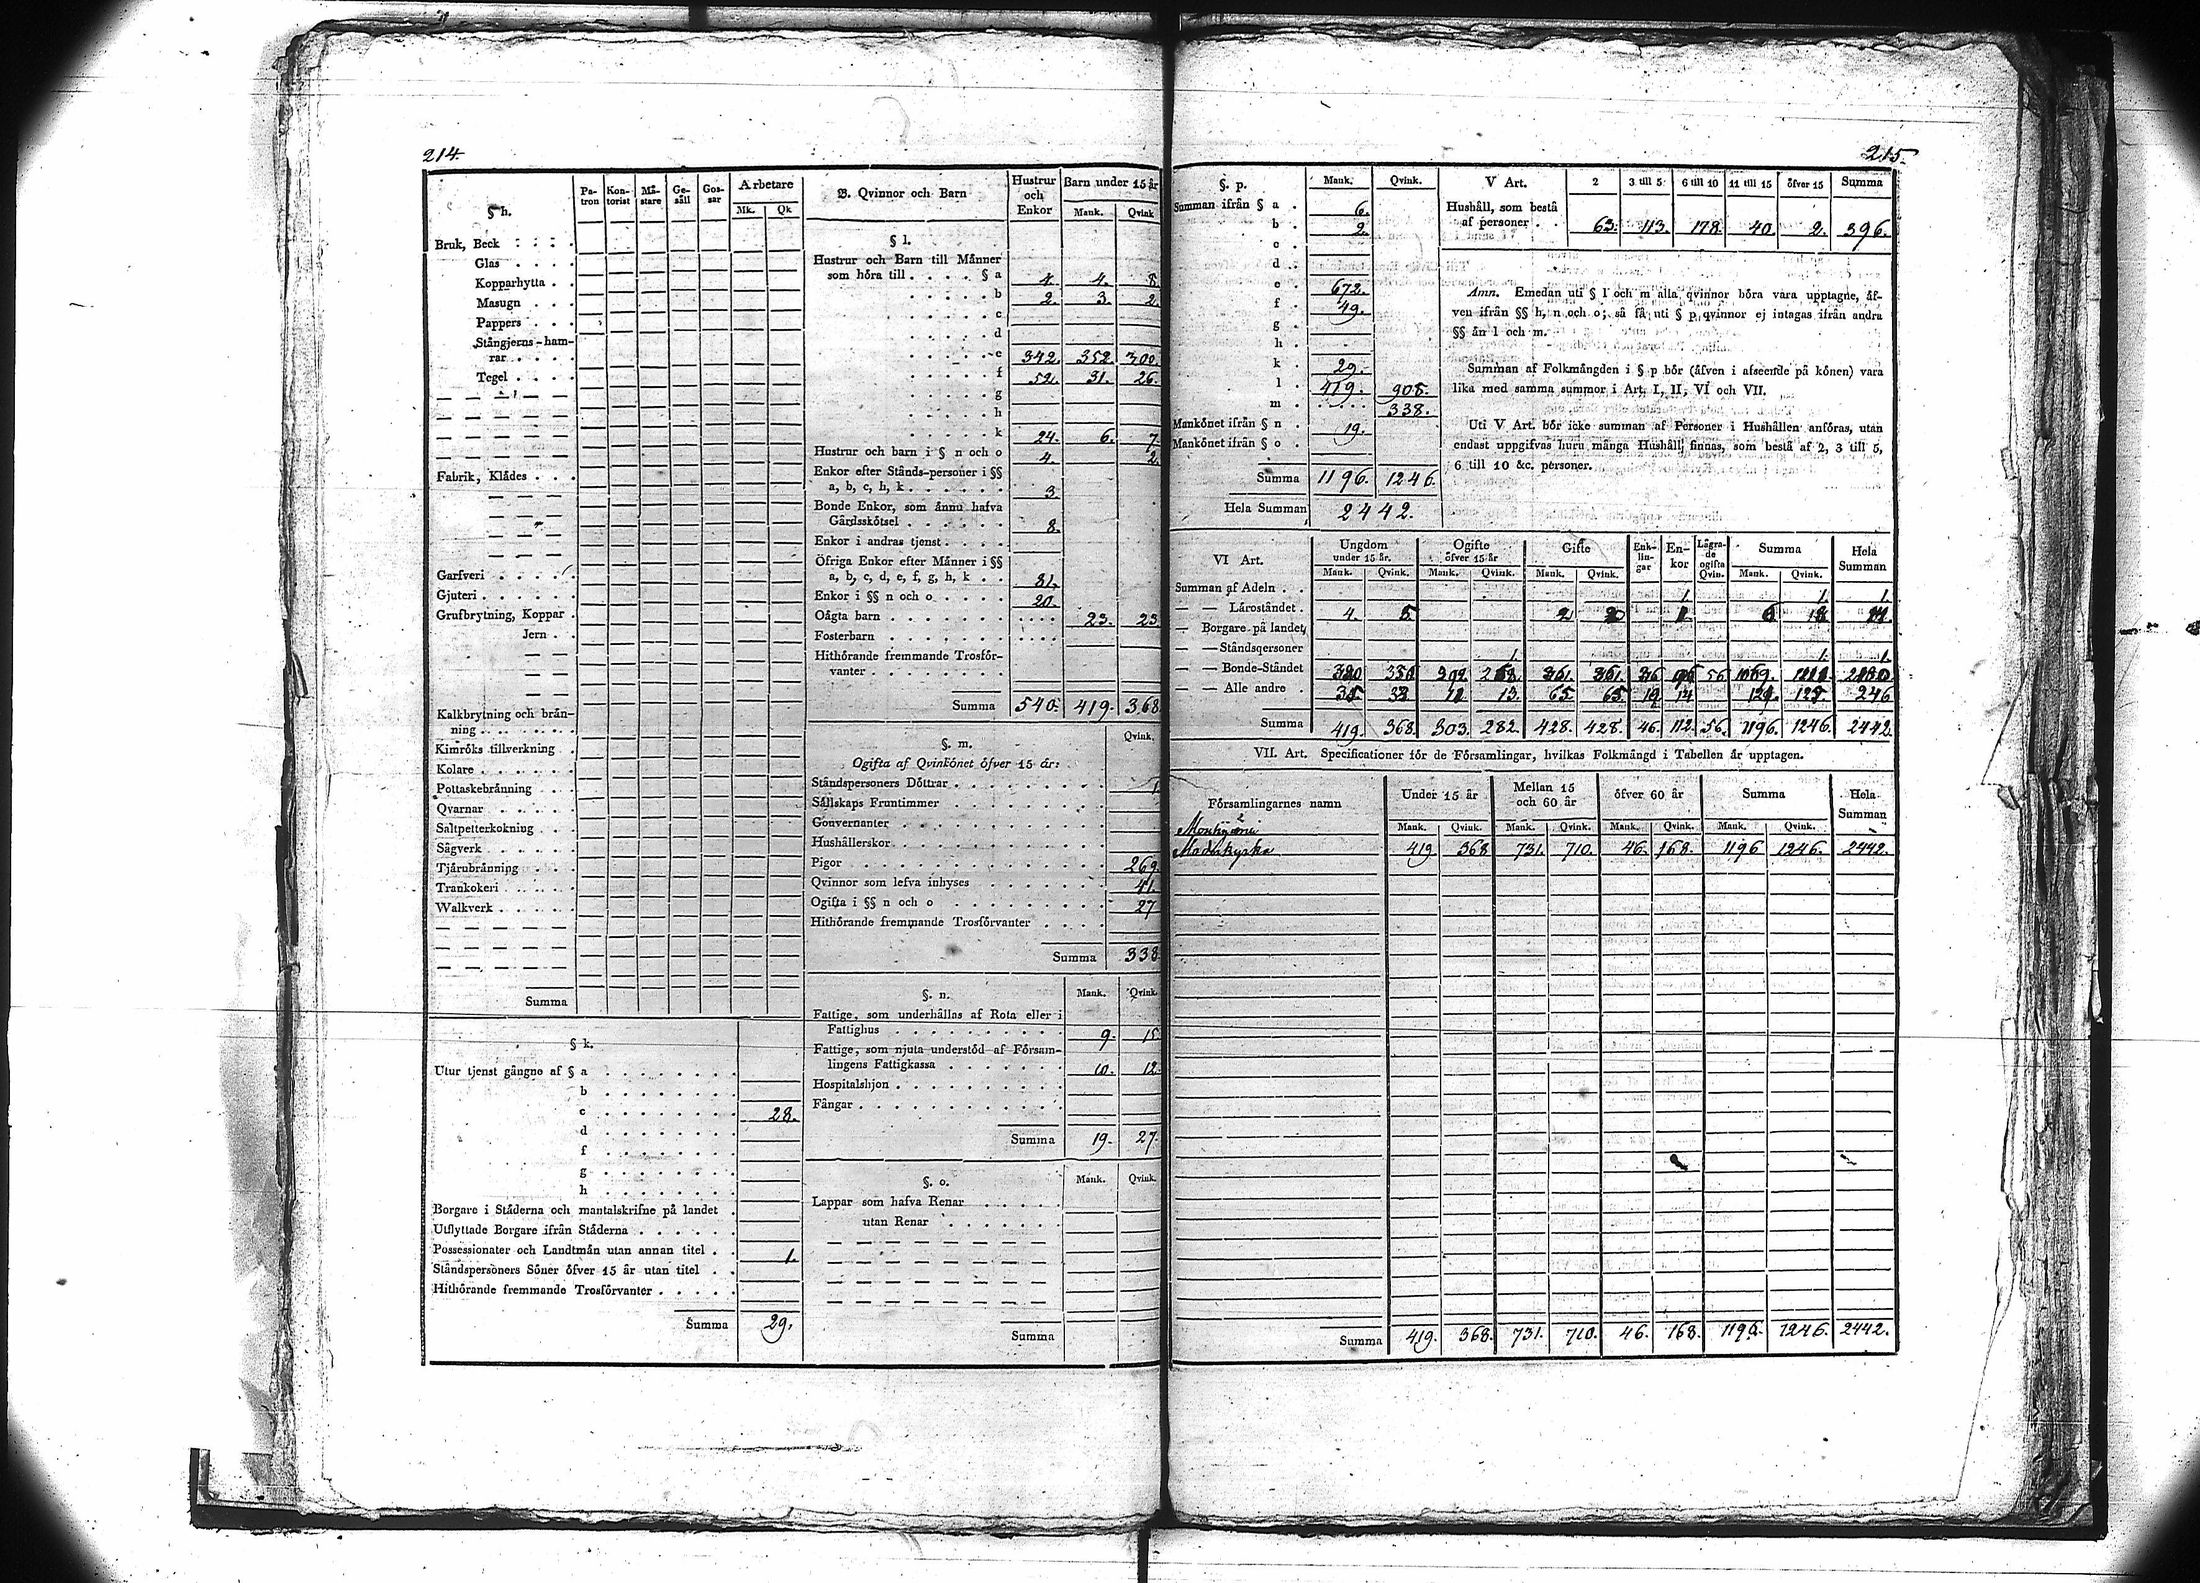 214.
§ h.
Pa-tron Kon-torist Må-stare Ge-säll Gos-sar Arbetare
Mk. Qk
Bruk, Beck
Glas
Kopparhytta
Masugn
Pappers
Stångjerns-ham-
rar
Tegel
Fabrik, Klådes
Garfveri
Gjuteri
Grufbrytning, Koppar
Jern
Kalkbrytning och brån-
ning
Kimröks tillverkning
Kolare
Pottaskebrånning
Qvarnar
Saltpetterkokning
Sågverk
Tjårubrånning
Trankokeri
Walkverk
Summa
§ k.
Utur tjenst gångne af § a
b
c 28.
d
f
g
h
Borgare i Ståderna och mantalskrifne på landet
Utflyttade Borgare ifrån Ståderna
Possessionater och Landtmån utan annan titel 1.
Ståndspersoners Söner öfver 15 år utan titel
Hithörande fremmande Trosförvanter
Summa 29.
B. Qvinnor och Barn
Hustrur och Enkor Barn under 15 år
Mank. Qvink
§ l.
Hustrur och Barn till Månner
som höra till § a 4. 4. 8.
b 2. 3. 2.
c
d
e 342. 352. 300.
f 52. 31. 26.
g
h
k 24. 6. 7.
Hustrur och barn i § n och o 4. 2.
Enkor efter Stånds-personer i §§
a, b, c, h, k 3.
Bonde Enkor, som ånnu hafva
Gårdsskötsel 8.
Enkor i andras tjenst
Öfriga Enkor efter Månner i §§
a, b, c, d, e, f, g, h, k 81.
Enkor i §§ n och o 20.
Oågta barn 23. 23
Fosterbarn
Hithörande fremmande Trosför-
vanter
Summa 540. 419. 368
§. m.
Qvink.
Ogifta af Qvinkönet öfver 15 år:
Ståndspersoners Döttrar 1
Sållskaps Fruntimmer
Gouvernanter
Hushållerskor
Pigor 269.
Qvinnor som lefva inhyses 41.
Ogifta i §§ n och o 27
Hithörande fremmande Trosförvanter
Summa 338
§. n. Mank. Qvink.
Fattige, som underhållas af Rota eller i
Fattighus 9. 15.
Fattige, som njuta understöd af Församlingens
Fattigkassa 10. 12.
Hospitalshjon
Fångar
Summa 19. 27.
§. o. Mank. Qvink.
Lappar som hafva Renar
utan Renar
Summa
215.
§. p. Mank. Qvink.
Summan ifrån § a 6.
b 2.
c
d
e 672.
f 49.
g
h
k 29.
l 419. 908.
m 338.
Mankönet ifrån § n 19.
Mankönet ifrån § o
Summa 1196. 1246.
Hela Summan 2442.
V Art. 2 3 till 5 6 till 10 11 till 15 öfver 15 Summa
Hushåll, som bestå
af personer 63. 113. 178. 40. 2. 396.
Anm. Emedan uti § l och m alla qvinnor böra vara upptagne, åf-
ven ifrån §§ h, n och o; så få uti § p qvinnor ej intagas ifrån andra
§§ ån l och m.
Summan af Folkmångden i § p bör (åfven i afseende på könen) vara
lika med samma summor i Art. I, II, VI och VII.
Uti V Art. bör icke summan af Personer i Hushållen anföras, utan
endast uppgifvas huru många Hushåll finnas, som bestå af 2, 3 till 5,
6 till 10 &c. personer.
VI Art.
Ungdom under 15 år. Ogifte öfver 15 år Gifte Enk-lin-gar En-kor Lågra-de ogifta Qvin. Summa Hela Summan
Mank. Qvink. Mank. Qvink. Mank. Qvink. Mank. Qvink.
Summan af Adeln 1. 1. 1.
— — Låroståndet 4.
— Borgare på landet
— — Ståndspersoner 1. 1. 1.
— — Bonde-Ståndet 56.
— — Alle andre 13. 65. 65. 246
Summa 419. 368. 303. 282. 428. 428. 46. 112. 56. 1196. 1246. 2442.
VII. Art. Specificationer för de Församlingar, hvilkas Folkmångd i Tabellen år upptagen.
Församlingarnes namn Under 15 år Mellan 15 och 60 år öfver 60 år Summa Hela Summan
Mank. Qvink. Mank. Qvink. Mank. Qvink. Mank. Qvink.
Moderkyrka 419 368 731. 710. 46. 168. 1196 1246. 2442.
Summa 419. 368. 731. 710. 46. 168. 1196. 1246. 2442.